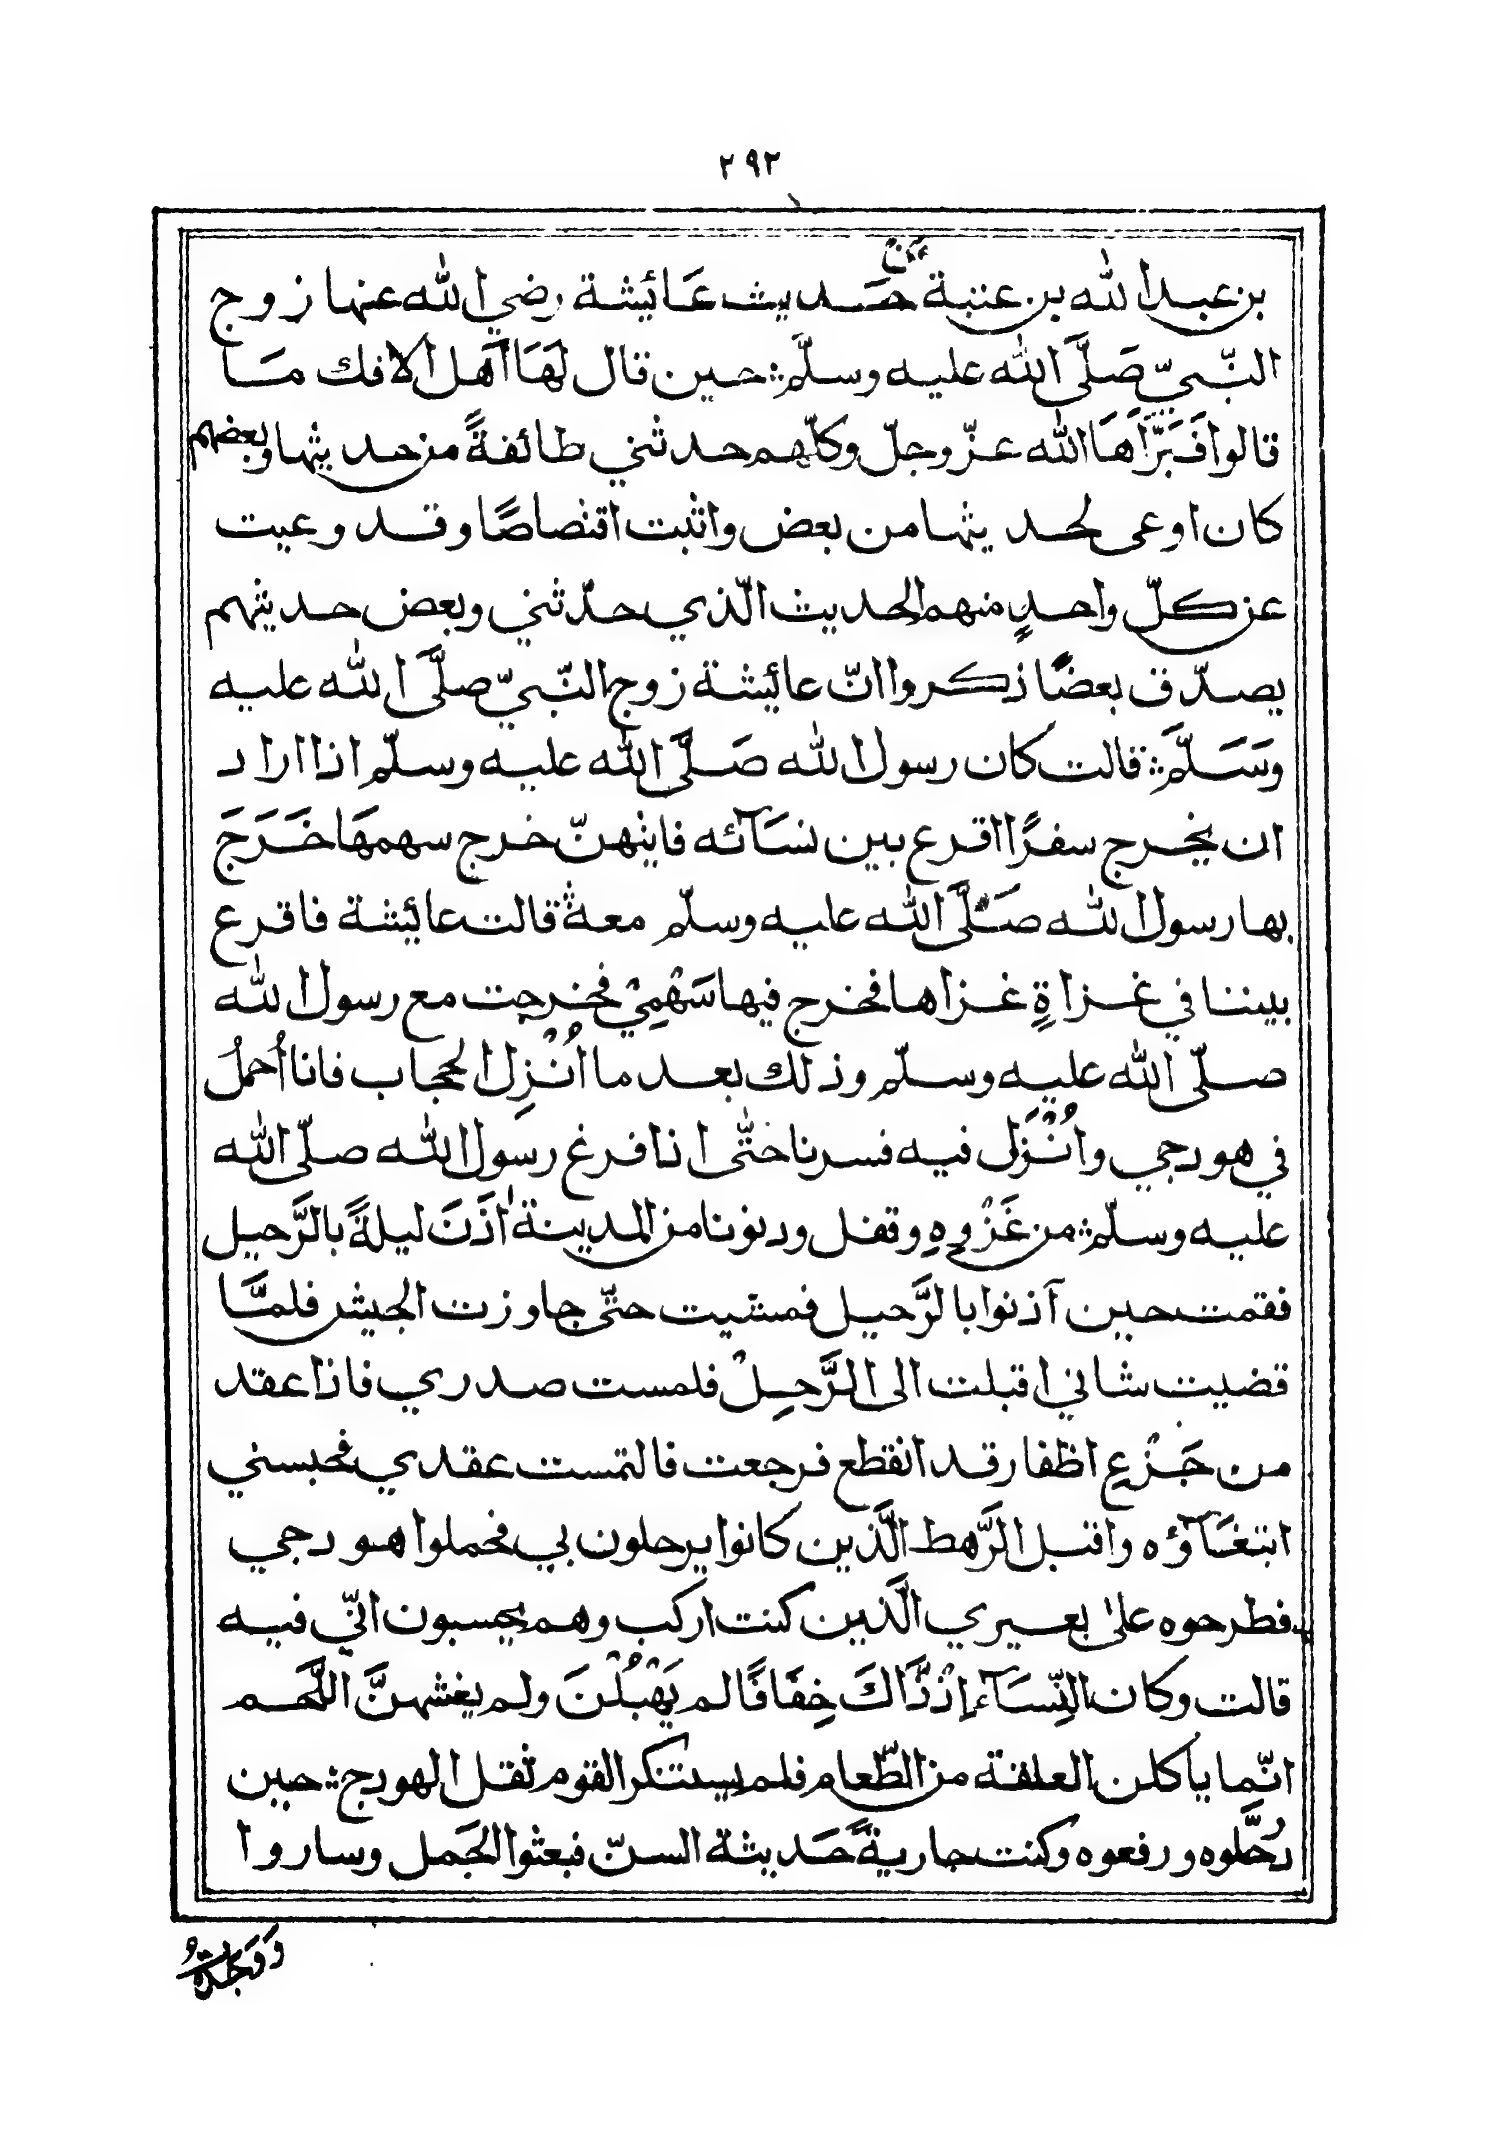 ٢٩٢
بن عبد الله بن عتبة عن حَديث عَائيشة رضي الله عنها زوج
النّبيّ صَلَّى الله عليه وسلّم حين قال لَهَا اَهَل الافك مَا
قالوا فَبَرَّاَهَا الله عزّ وجلّ وكلّهم حدثني طائفةً من حديثها وبعضهم
كان اوعى لحديثها من بعض واثبت اقتصاصًا وقد وعيت
عن كلّ واحدٍ منهم الحديث الّذي حدّثني وبعض حديثهم
يصدّق بعضًا ذكروا انّ عائيشة زوج النّبيّ صلَّى الله عليه
وَسَلَّم قالت كان رسول الله صَلَّى الله عليه وسلّم اذا اراد
ان يخرج سفرًا اقرع بين نسَآئه فاينهنّ خرج سهمهَا خَرَجَ
بها رسول الله صَلَّى الله عليه وسلّم معهُ قالت عائيشة فاقرع
بيننا في غزاةٍ غزاها فخرج فيها سَهْمِيْ فخرجت مع رسول الله
صلّى الله عليه وسلّم وذلك بعد ما اُنْزِل الحجاب فانا اُحملُ
في هودجي واُنْزَل فيه فسرنا حتّٰى اذا فرغ رسول الله صلّى الله
عليه وسلّم من غَزْوِهِ وقفل ودنونا من المدينة اٰذَنَ ليلةً بالرَّحيل
فقمت حين آذنوا بالرَّحيل فمشيت حتّى جاوزت الجيش فلمَّا
قضيت شاني اقبلت الى الرَّحِلْ فلمست صدري فاذا عقد
من جَزْعِ اظفار قد انقطع فرجعت فالتمست عقدي فحبسني
ابتغَآؤه واقبل الرَّهط الَّذين كانوا يرحلون بي فحملوا هودجي
فطرحوه علىٰ بعيري الَّذين كنت اركب وهم يحسبون انّي فيه
قالت وكان النِّسَآء اِذْ ذَّاكَ خِفَافًا لم يَهْبُلْنَ ولم يغشهنَّ اللَّحم
انّما ياكلن العلقة من الطّعام فلم يستنكر القوم ثقل الهودج حين
رُحَّلوه ورفعوه وكنت جاريةً حَديثة السنّ فبعثوا الجَمل وساروا
وَوَجَدتُ